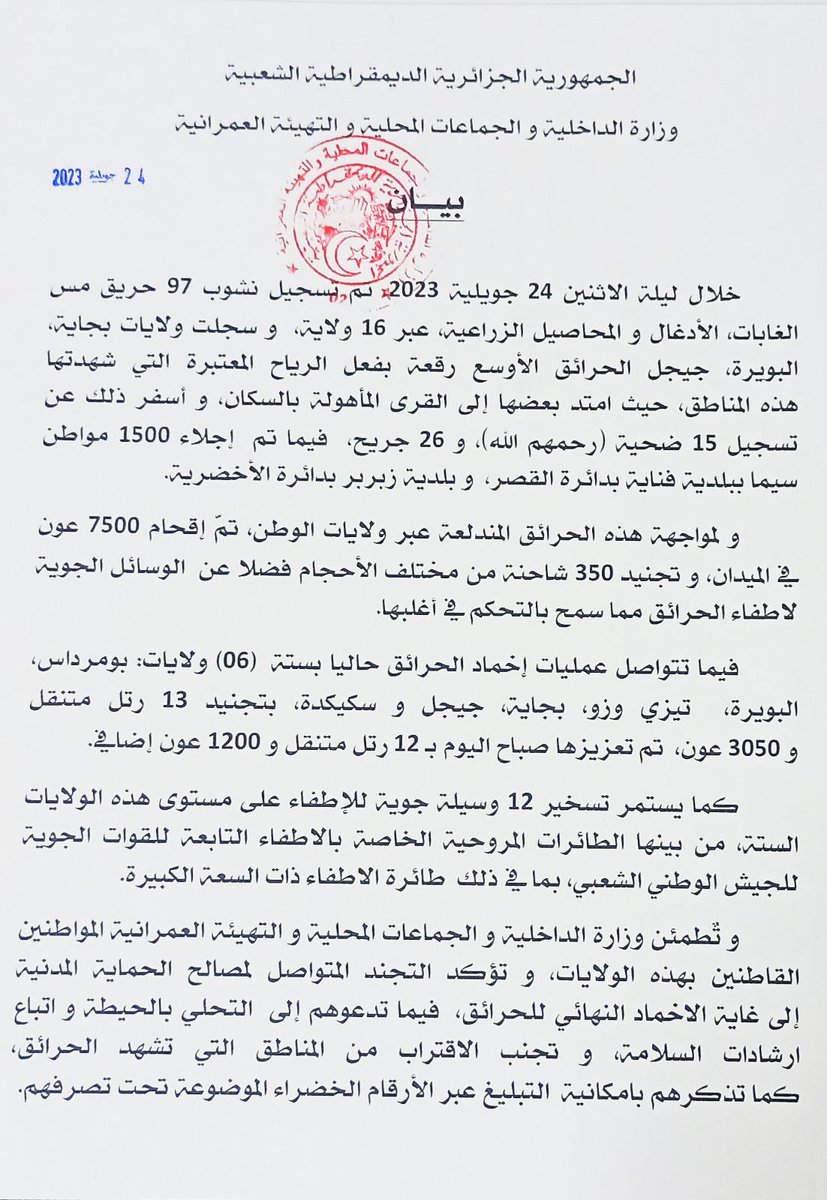 الجمهورية الجزائرية الديمقراطية الشعبية
وزارة الداخلية و الجماعات المحلية و التهيئة العمرانية
24 جويلية 2023
بيـــان
خلال ليلة الاثنين 24 جويلية 2023، تم تسجيل نشوب 97 حريق مس
الغابات، الأدغال و المحاصيل الزراعية، عبر 16 ولاية، و سجلت ولايات بجاية،
البويرة، جيجل الحرائق الأوسع رقعة بفعل الرياح المعتبرة التي شهدتها
هذه المناطق، حيث امتد بعضها إلى القرى المأهولة بالسكان، و أسفر ذلك عن
تسجيل 15 ضحية (رحمهم الله)، و 26 جريح، فيما تم إجلاء 1500 مواطن
سيما ببلدية فناية بدائرة القصر، و بلدية زبربر بدائرة الأخضرية.
و لمواجهة هذه الحرائق المندلعة عبر ولايات الوطن، تمّ إقحام 7500 عون
في الميدان، و تجنيد 350 شاحنة من مختلف الأحجام فضلا عن الوسائل الجوية
لاطفاء الحرائق مما سمح بالتحكم في أغلبها.
فيما تتواصل عمليات إخماد الحرائق حاليا بستة (06) ولايات: بومرداس،
البويرة، تيزي وزو، بجاية، جيجل و سكيكدة، بتجنيد 13 رتل متنقل
و 3050 عون، تم تعزيزها صباح اليوم بـ 12 رتل متنقل و 1200 عون إضافي.
كما يستمر تسخير 12 وسيلة جوية للإطفاء على مستوى هذه الولايات
الستة، من بينها الطائرات المروحية الخاصة بالاطفاء التابعة للقوات الجوية
للجيش الوطني الشعبي، بما في ذلك طائرة الاطفاء ذات السعة الكبيرة.
و تُطمئن وزارة الداخلية و الجماعات المحلية و التهيئة العمرانية المواطنين
القاطنين بهذه الولايات، و تؤكد التجند المتواصل لمصالح الحماية المدنية
إلى غاية الاخماد النهائي للحرائق، فيما تدعوهم إلى التحلي بالحيطة و اتباع
ارشادات السلامة، و تجنب الاقتراب من المناطق التي تشهد الحرائق،
كما تذكرهم بامكانية التبليغ عبر الأرقام الخضراء الموضوعة تحت تصرفهم.